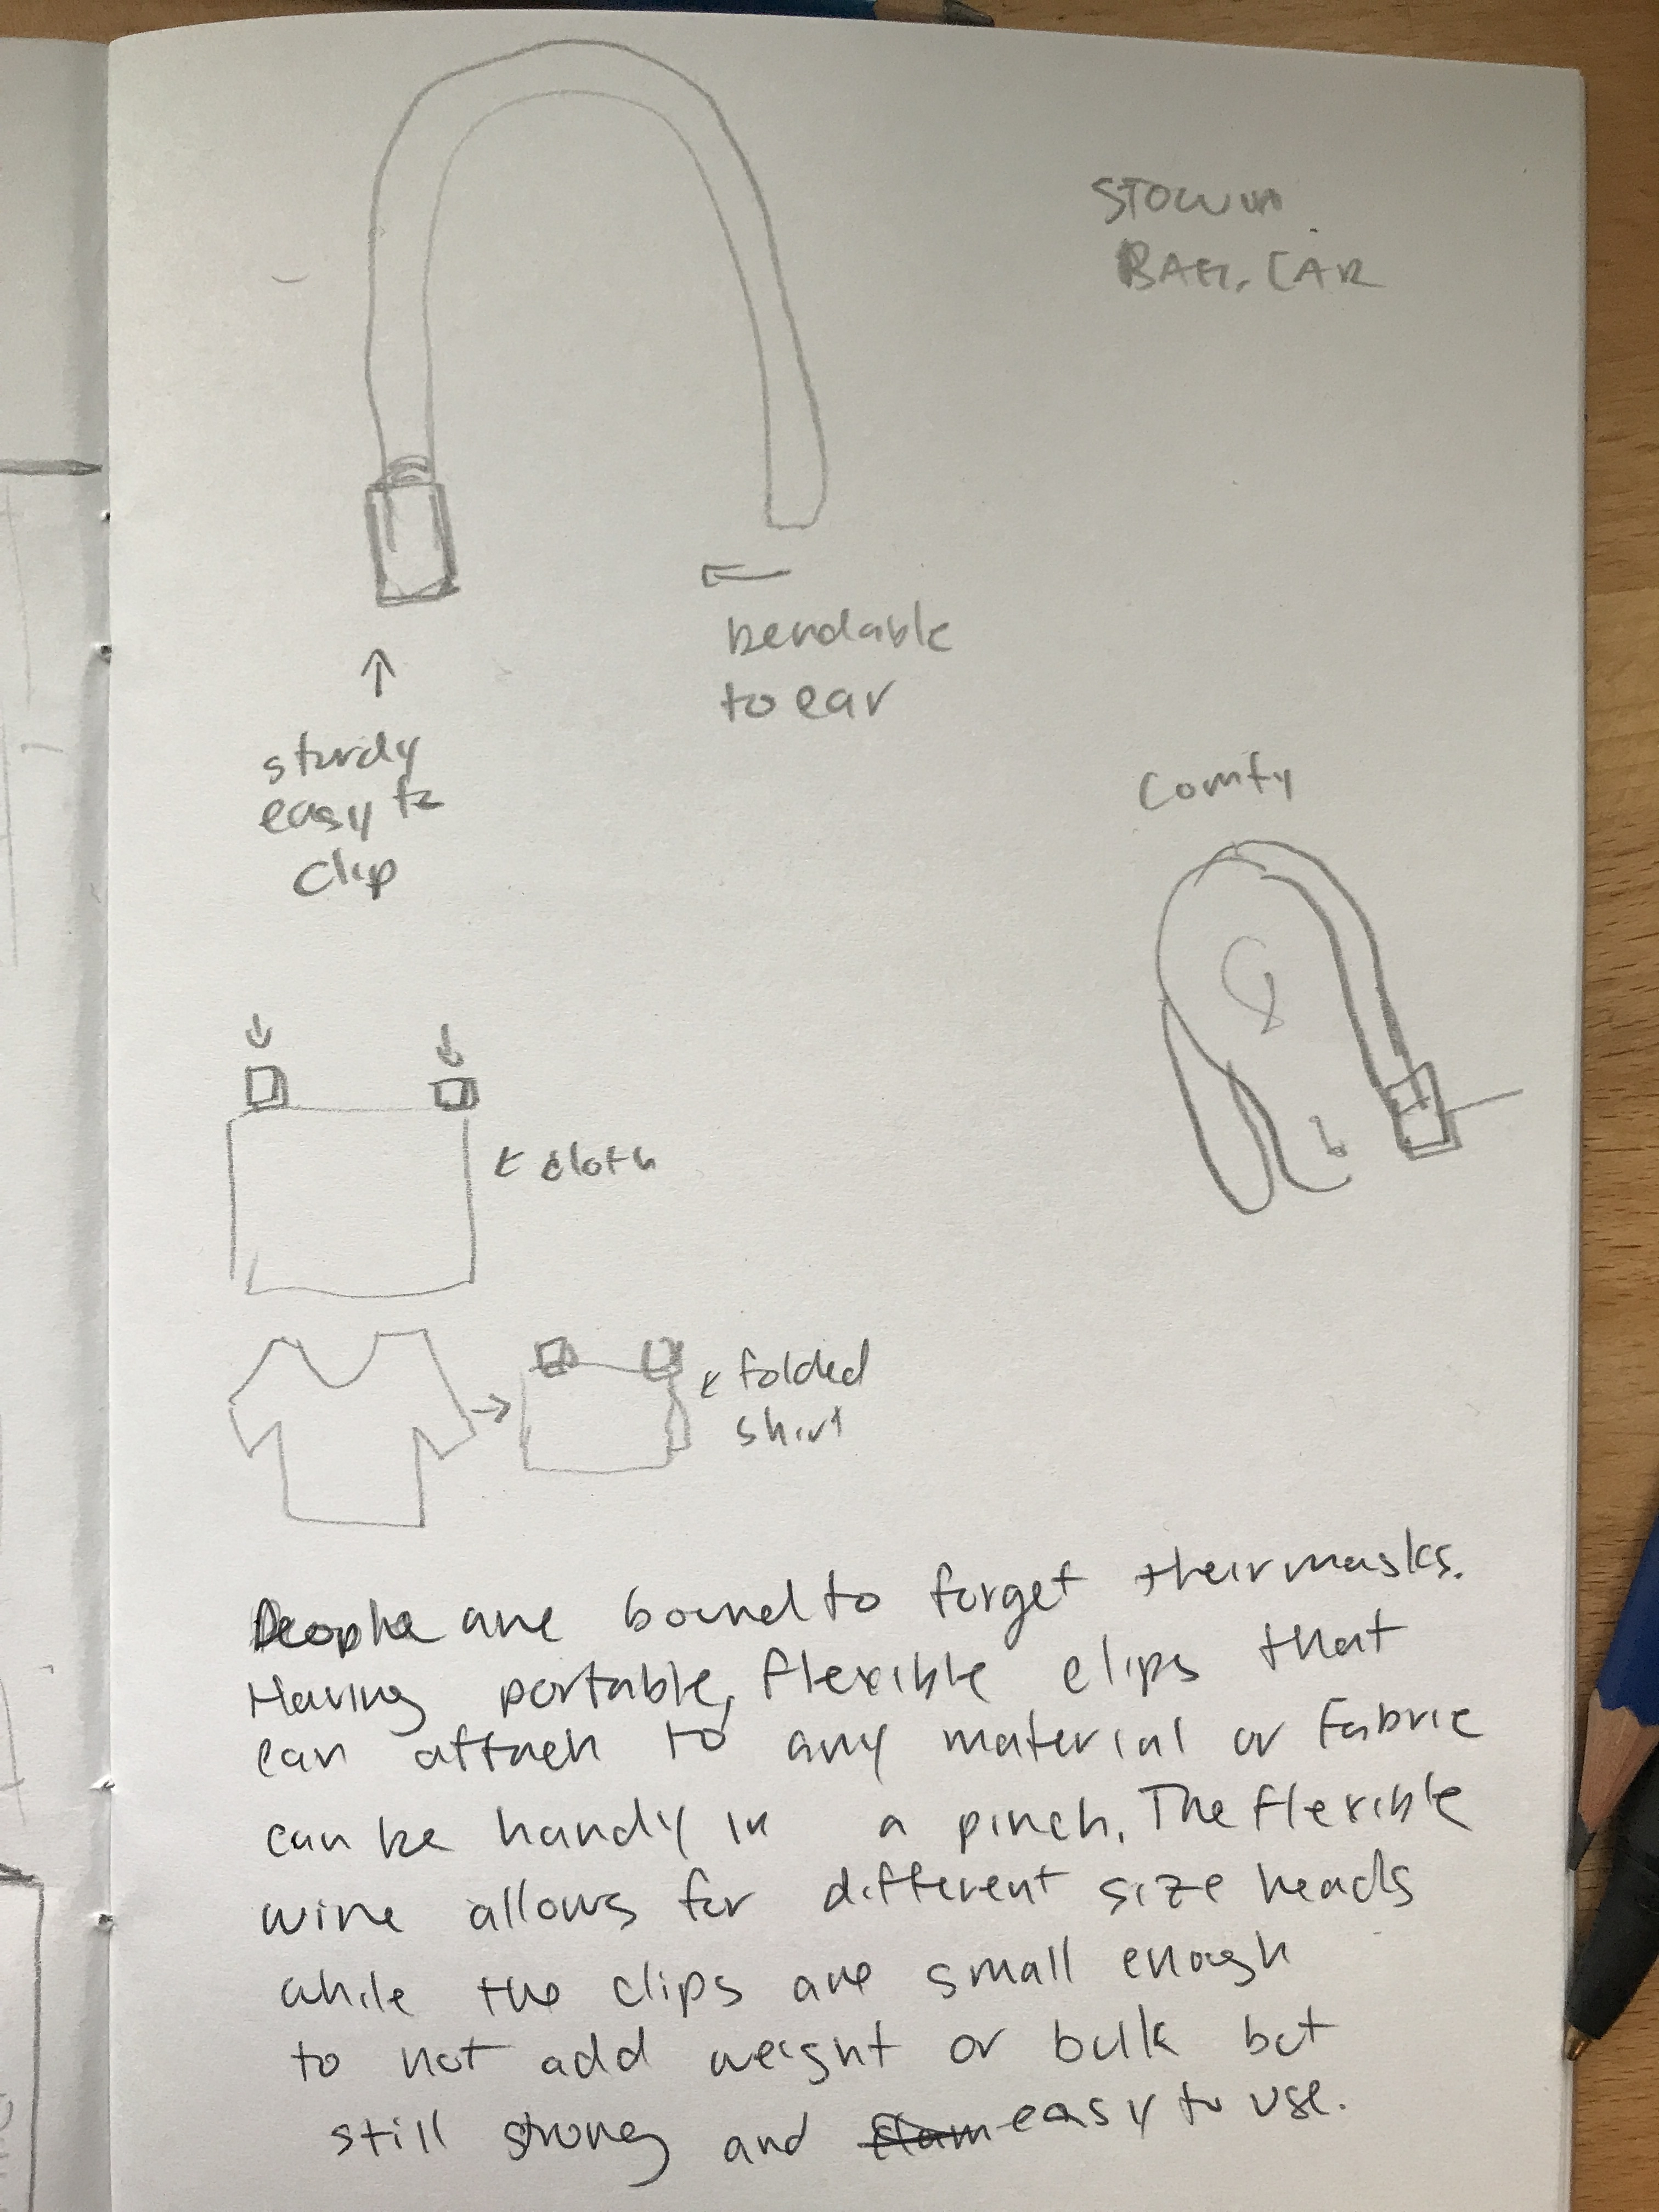 STOW IN
BAG, CAR
bendable
to ear
sturdy
easy to
clip
comfy
cloth
folded
shirt
People are bound to forget their masks.
Having portable, flexible clips that
can attach to any material or fabric
can be handy in a pinch. The flexible
wire allows for different size heads
while the clips are small enough
to not add weight or bulk but
still strong and easy to use.